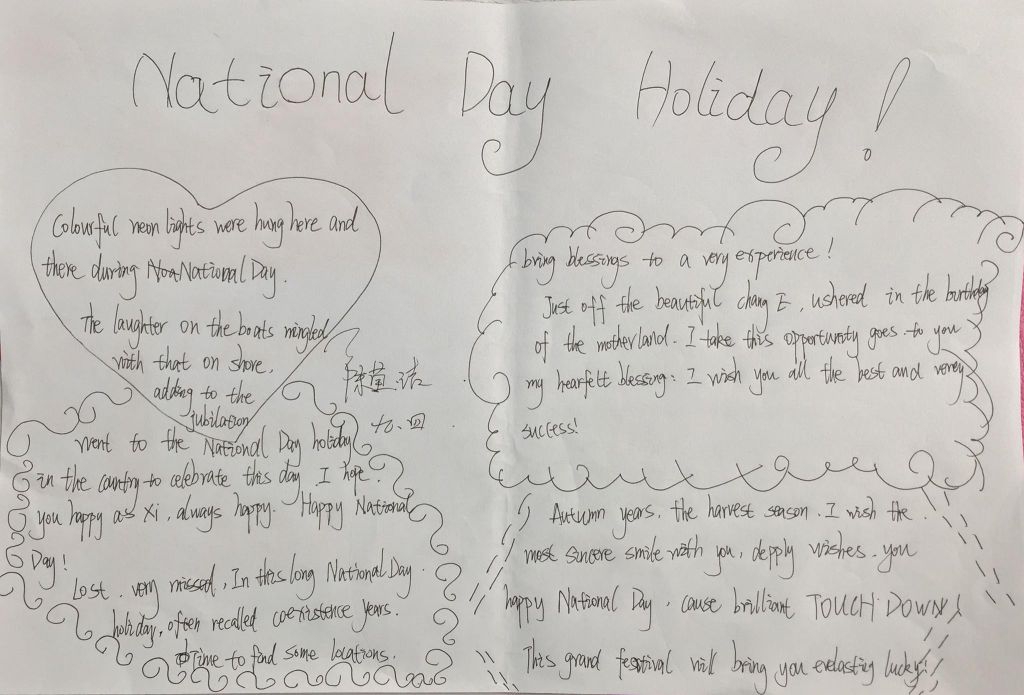 National Day Holiday!
Colourful neon lights were hung here and
there during National Day.
The laughter on the boats mingled
with that on shore,
adding to the
jubilation
went to the National Day holiday
in the country to celebrate this day. I hope
you happy as Xi, always happy. Happy National
Day!
Lost, very missed, In this long National Day
holiday, often recalled coexistence years.
Time to find some locations.
七、四
bring blessings to a very experience!
Just off the beautiful chang E, ushered in the
of the motherland. I take this opportunity goes to you
my hearfelt blessing: I wish you all the best and
success!
Autumn years, the harvest season. I wish the
most sincere smile with you, depply wishes. you
happy National Day, cause brilliant, TOUCH DOWN!
This grand will bring you lucky!